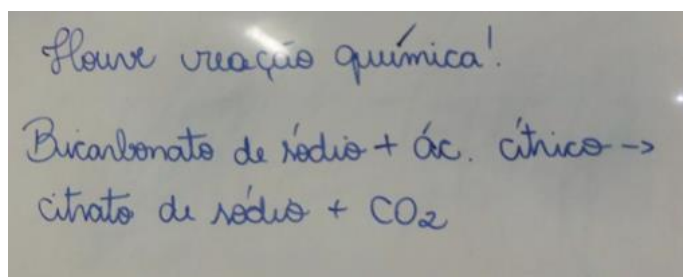 Houve reação química!
Bicarbonato de sódio + ác. cítrico ->
citrato de sódio + CO2